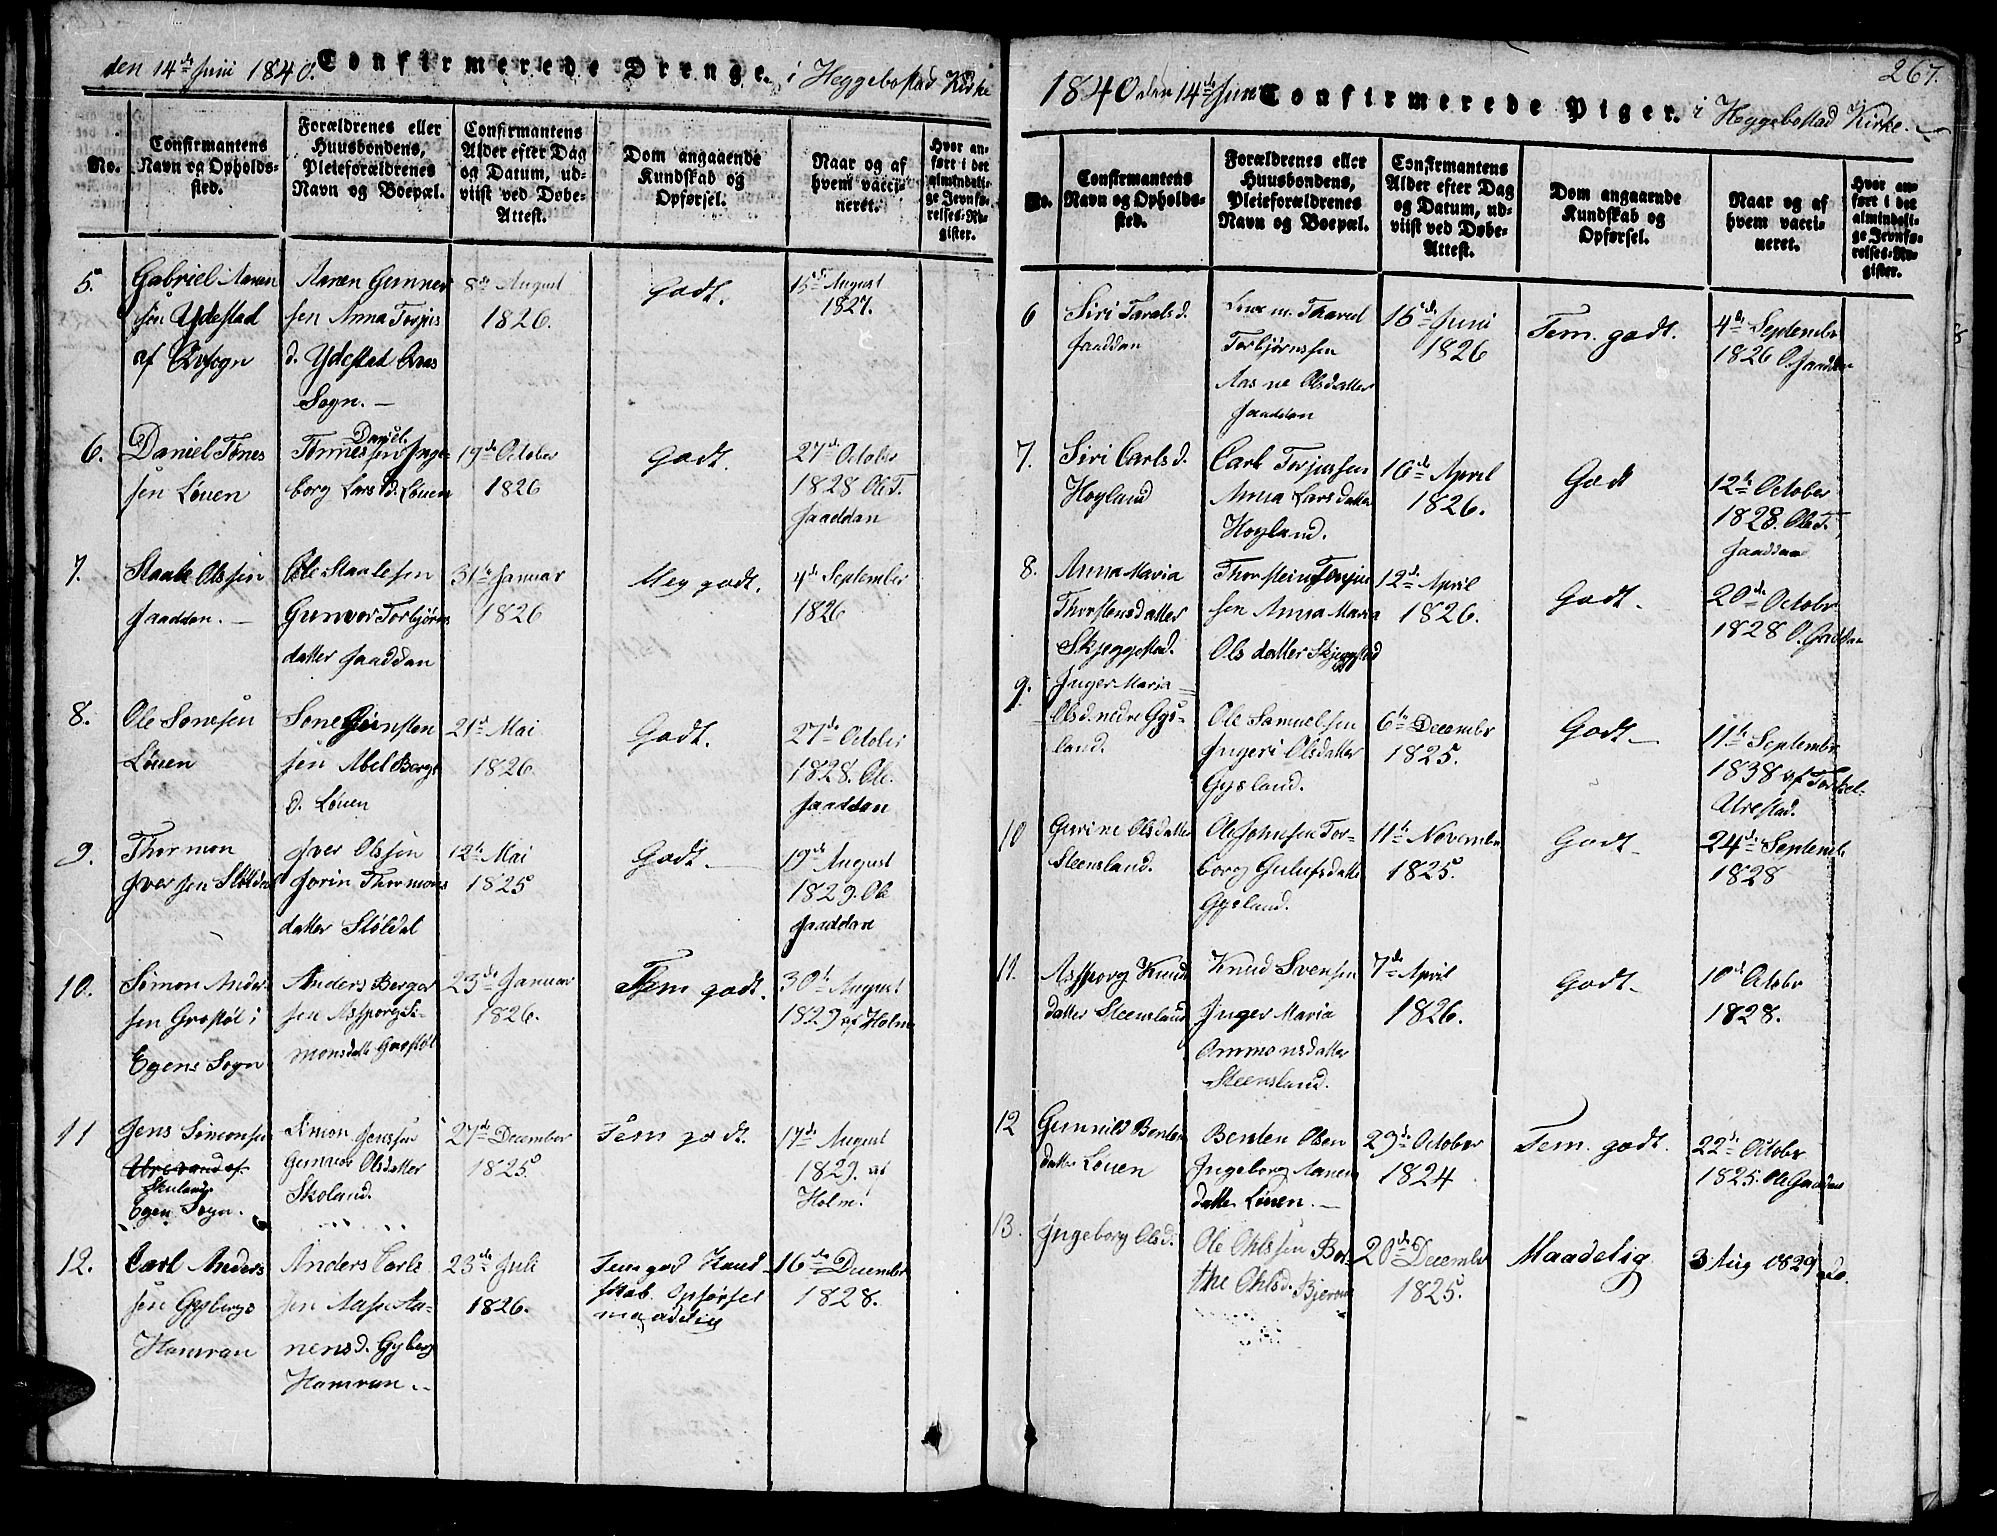 den 14de Juni 1840. Confirmerede Drenge. i Heggebostad Kirke
No.
Confirmantens
Navn og Opholds-
sted.
Forældrenes eller
Huusbondens,
Pleieforældrenes
Navn og Boepæl.
Confirmantens
Alder efter Dag
og Datum, ud-
viist ved Døbe-
Attest.
Dom angaaende
Kundskab og
Opførsel.
Naar og af
hvem vacci-
neret.
Hvor an-
ført i det
almindeli-
ge Jevnfø-
relses-Re-
gister.
5.
Gabriel Aanen
sen Ydestad
af Qvs Sogn
Aanen Gunner
sen Anna Torjus
d. Ydestad Qvas
Sogn. —
8de August
1826.
Godt.
15de August
1827.
6.
Daniel Tønes
sen Løuen
Tønnes Daniel
sen Inge-
borg Lars d. Løuen
19de October
1826
Godt.
27de October
1828 Ole T.
Jaaddan
7.
Staale Olssen
Jaaddan. —
Ole Staalesen
Gunvor Torbjørns
datter Jaaddan
31te Januar
1826
Meg godt.
4de September
1826
8.
Ole Sønesen
Løuen
Søne Gunsten
sen Abel Bergs
d. Løuen
21de Mai
1826.
Godt.
27de October
1828. Ole.
Jaaddan
9.
Thormon
Iversen Støldal
Iver Olssen
Jorin Thormons
datter Støldal
12te Mai
1825
Godt. —
19de August
1829. Ole
Jaaddan
10.
Simon Ander
sen Grostøl i
Egens Sogn
Anders Berger
sen Assporg Si-
monsdatt Grostøl
23de Januar
1826.
Tem godt.
30te August
1829 af Holm
11
Jens Simonsen
Urevand af
Skuland
Egen Sogn.
Simon Jenssen
Gunvor Olsdatter
Skoland.
27de December
1825
Tem godt.
17de August
1829. af
Holm.
12.
Carl Anders
sen Gybergs
Hamran
Anders Carls
sen Aase Aa-
nensd. Gyberg
Hamran. —
23de Juli
1826.
Tem god Kund
skab. Opførsel
maadelig
16de December
1828.
267.
1840 den 14de Juni Confirmerede Piger. i Heggebostad Kirke. —
No.
Confirmantens
Navn og Opholds-
sted.
Forældrenes eller
Huusbondens,
Pleieforældrenes
Navn og Boepæl.
Confirmantens
Alder efter Dag
og Datum, ud-
viist ved Døbe-
Attest.
Dom angaaende
Kundskab og
Opførsel.
Naar og af
hvem vacci-
neret.
Hvor an-
ført i det
almindeli-
ge Jevnfø-
relses-Re-
gister.
6
Siri Tarals d.
Jaaddan
Tharal
Torbjørnssen
Aasne Olsdatter
Jaaddan
15de Juni
1826
Tem. godt.
4de September
1826 O. Jaaddan
7.
Siri Carls d.
Hoyland
Carl Torjussen
Anna Larsdatter
Hoyland.
16de April
1826.
Godt
12te October
1828. Ole T.
Jaaddan
8.
Anna Maria
Thorstensdatter
Skjeggestad.
Thorstein Torjus
sen Anna Maria
Olsdatter Skjeggestad
12te April
1826.
Godt.
20de Octobr
1828 O. Jaddan
9.
Inger Maria
Olsd. nedre Gys-
land.
Ole Samuelsen
Ingeri Olsdatter
Gysland.
6te Decembr
1825.
Godt —
11te Septembr
1838 af Torkel
Urestad.
10
Gurine Olsdatter
Steensland.
Ole Johnsen Tor-
borg Gulufsdatter
Gysland.
11te Novembr
1825.
Godt —
24de Septemb
1828
11.
Assporg Knuds
datter Steensland
Knud Svensen
Inger Maria
Ommonsdatter
Steensland.
7de April
1826.
Godt —
10de Octobr
1828.
12
Gunnild Bentsen
datter Løuen
Benten Olsen
Ingeborg Aanen
datter Løuen. —
29de October
1824
Tem. godt.
22de Octobr
1825. Ole Jaaddan
13.
Ingeborg Olsd.
Ole Ohlssen Ber-
the Ohlsd. Bjerum
20de December
1825.
Maadelig
3 Aug 1829 do.